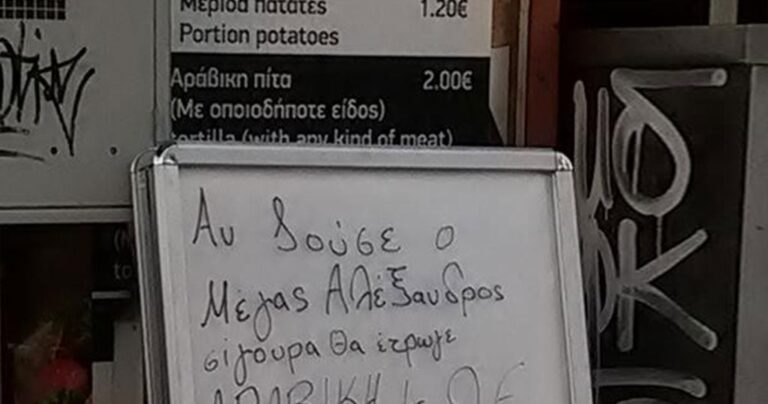 Μερίδα πατάτες 1.20€
Portion potatoes
Αράβικη πίτα 2.00€
(Με οποιοδήποτε είδος)
tortilla (with any kind of meat)
Αν ζούσε ο
Μέγας Αλέξανδρος
σίγουρα θα έτρωγε
ΑΡΑΒΙΚΗ